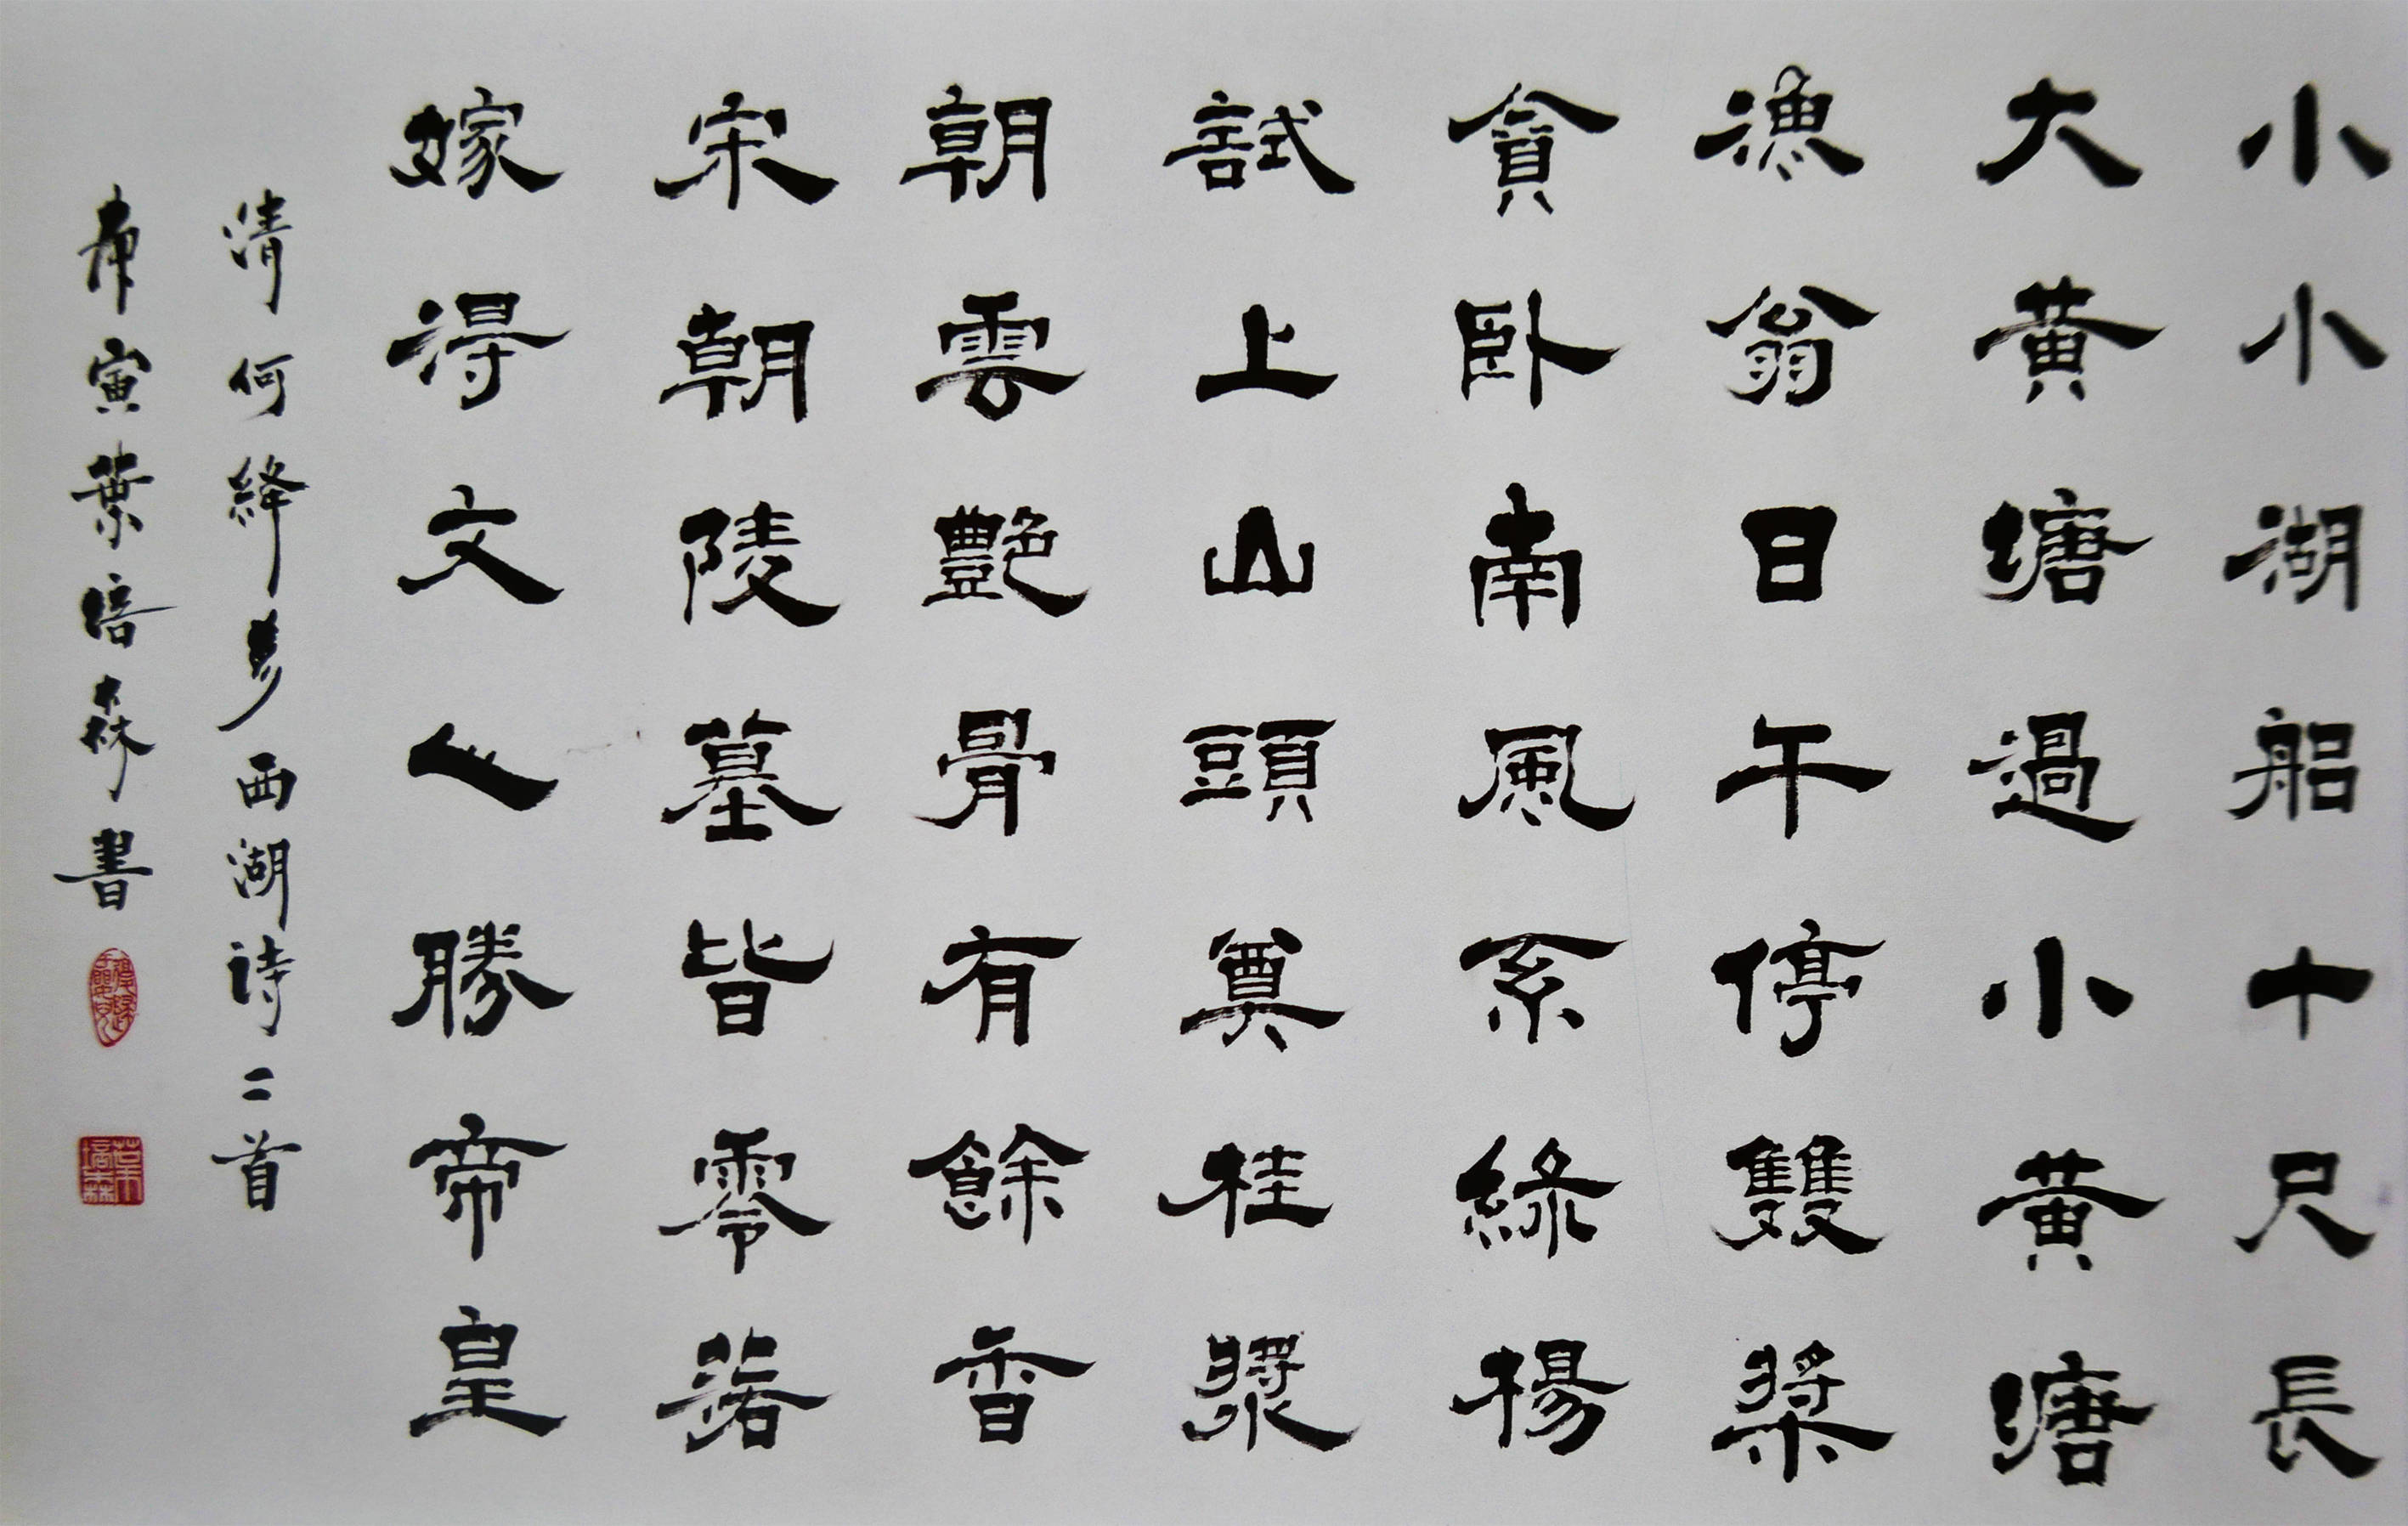 小小湖船十尺長
大黃塘過小黃塘
漁翁日午停雙槳
貪卧南風系綠楊
試上山頭奠桂漿
朝雲艷骨有餘香
宋朝陵墓皆零落
嫁得文人勝帝皇
清何絳 西湖詩二首
寅葉培森書
葉培森